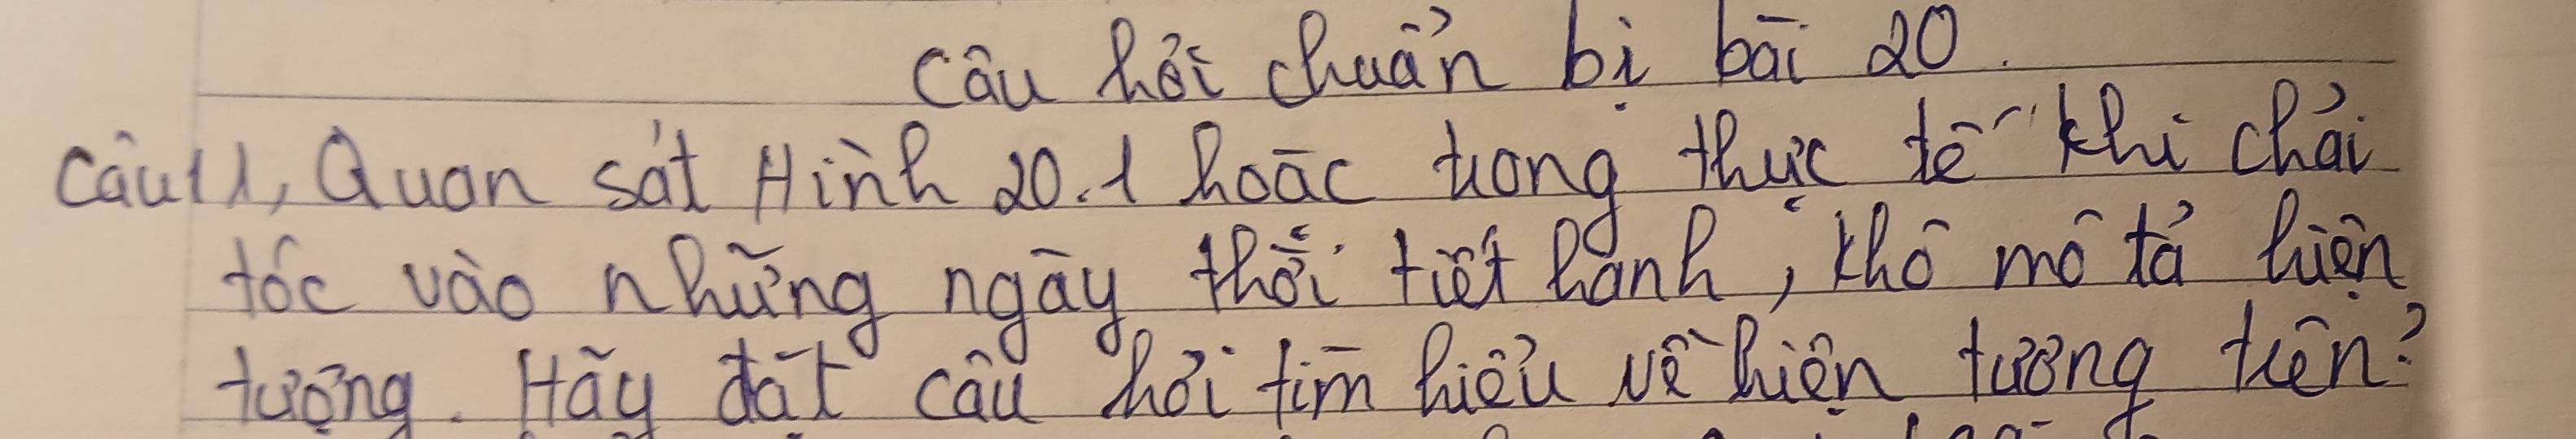 Câu hỏi chuẩn bị bài 20.
Câu 1, Quan sát Hình 20.1 hoặc trong thực tế khi chải
tóc vào những ngày thời tiết hanh, khô mô tả hiện
tượng. Hãy đặt câu hỏi tìm hiểu về hiện tượng trên?